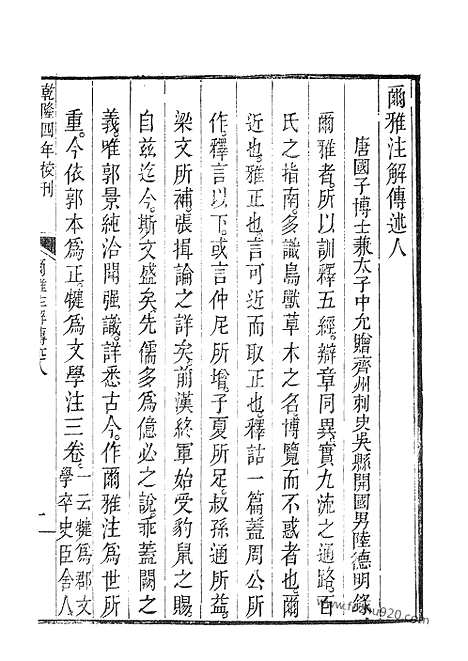 爾雅注解傳述人
唐國子博士兼太子中允贈齊州刺史吳縣開國男陸德明錄
爾雅者。所以訓釋五經。辯章同異。實九流之通路。百
氏之指南。多識鳥獸草木之名。博覽而不惑者也。爾
近也。雅正也。言可近而取正也。釋詁一篇。蓋周公所
作。釋言以下。或言仲尼所增。子夏所足。叔孫通所益。
梁文所補。張揖論之詳矣。前漢終軍始受豹鼠之賜。
自茲迄今。斯文盛矣。先儒多爲億必之說。乖蓋闕之
義。唯郭景純洽聞强識。詳悉古今。作爾雅注。爲世所
重。今依郭本爲正。犍爲文學注三卷。一云犍爲郡文
學卒史臣舍人
乾隆四年校刊
爾雅注解傳述人
一